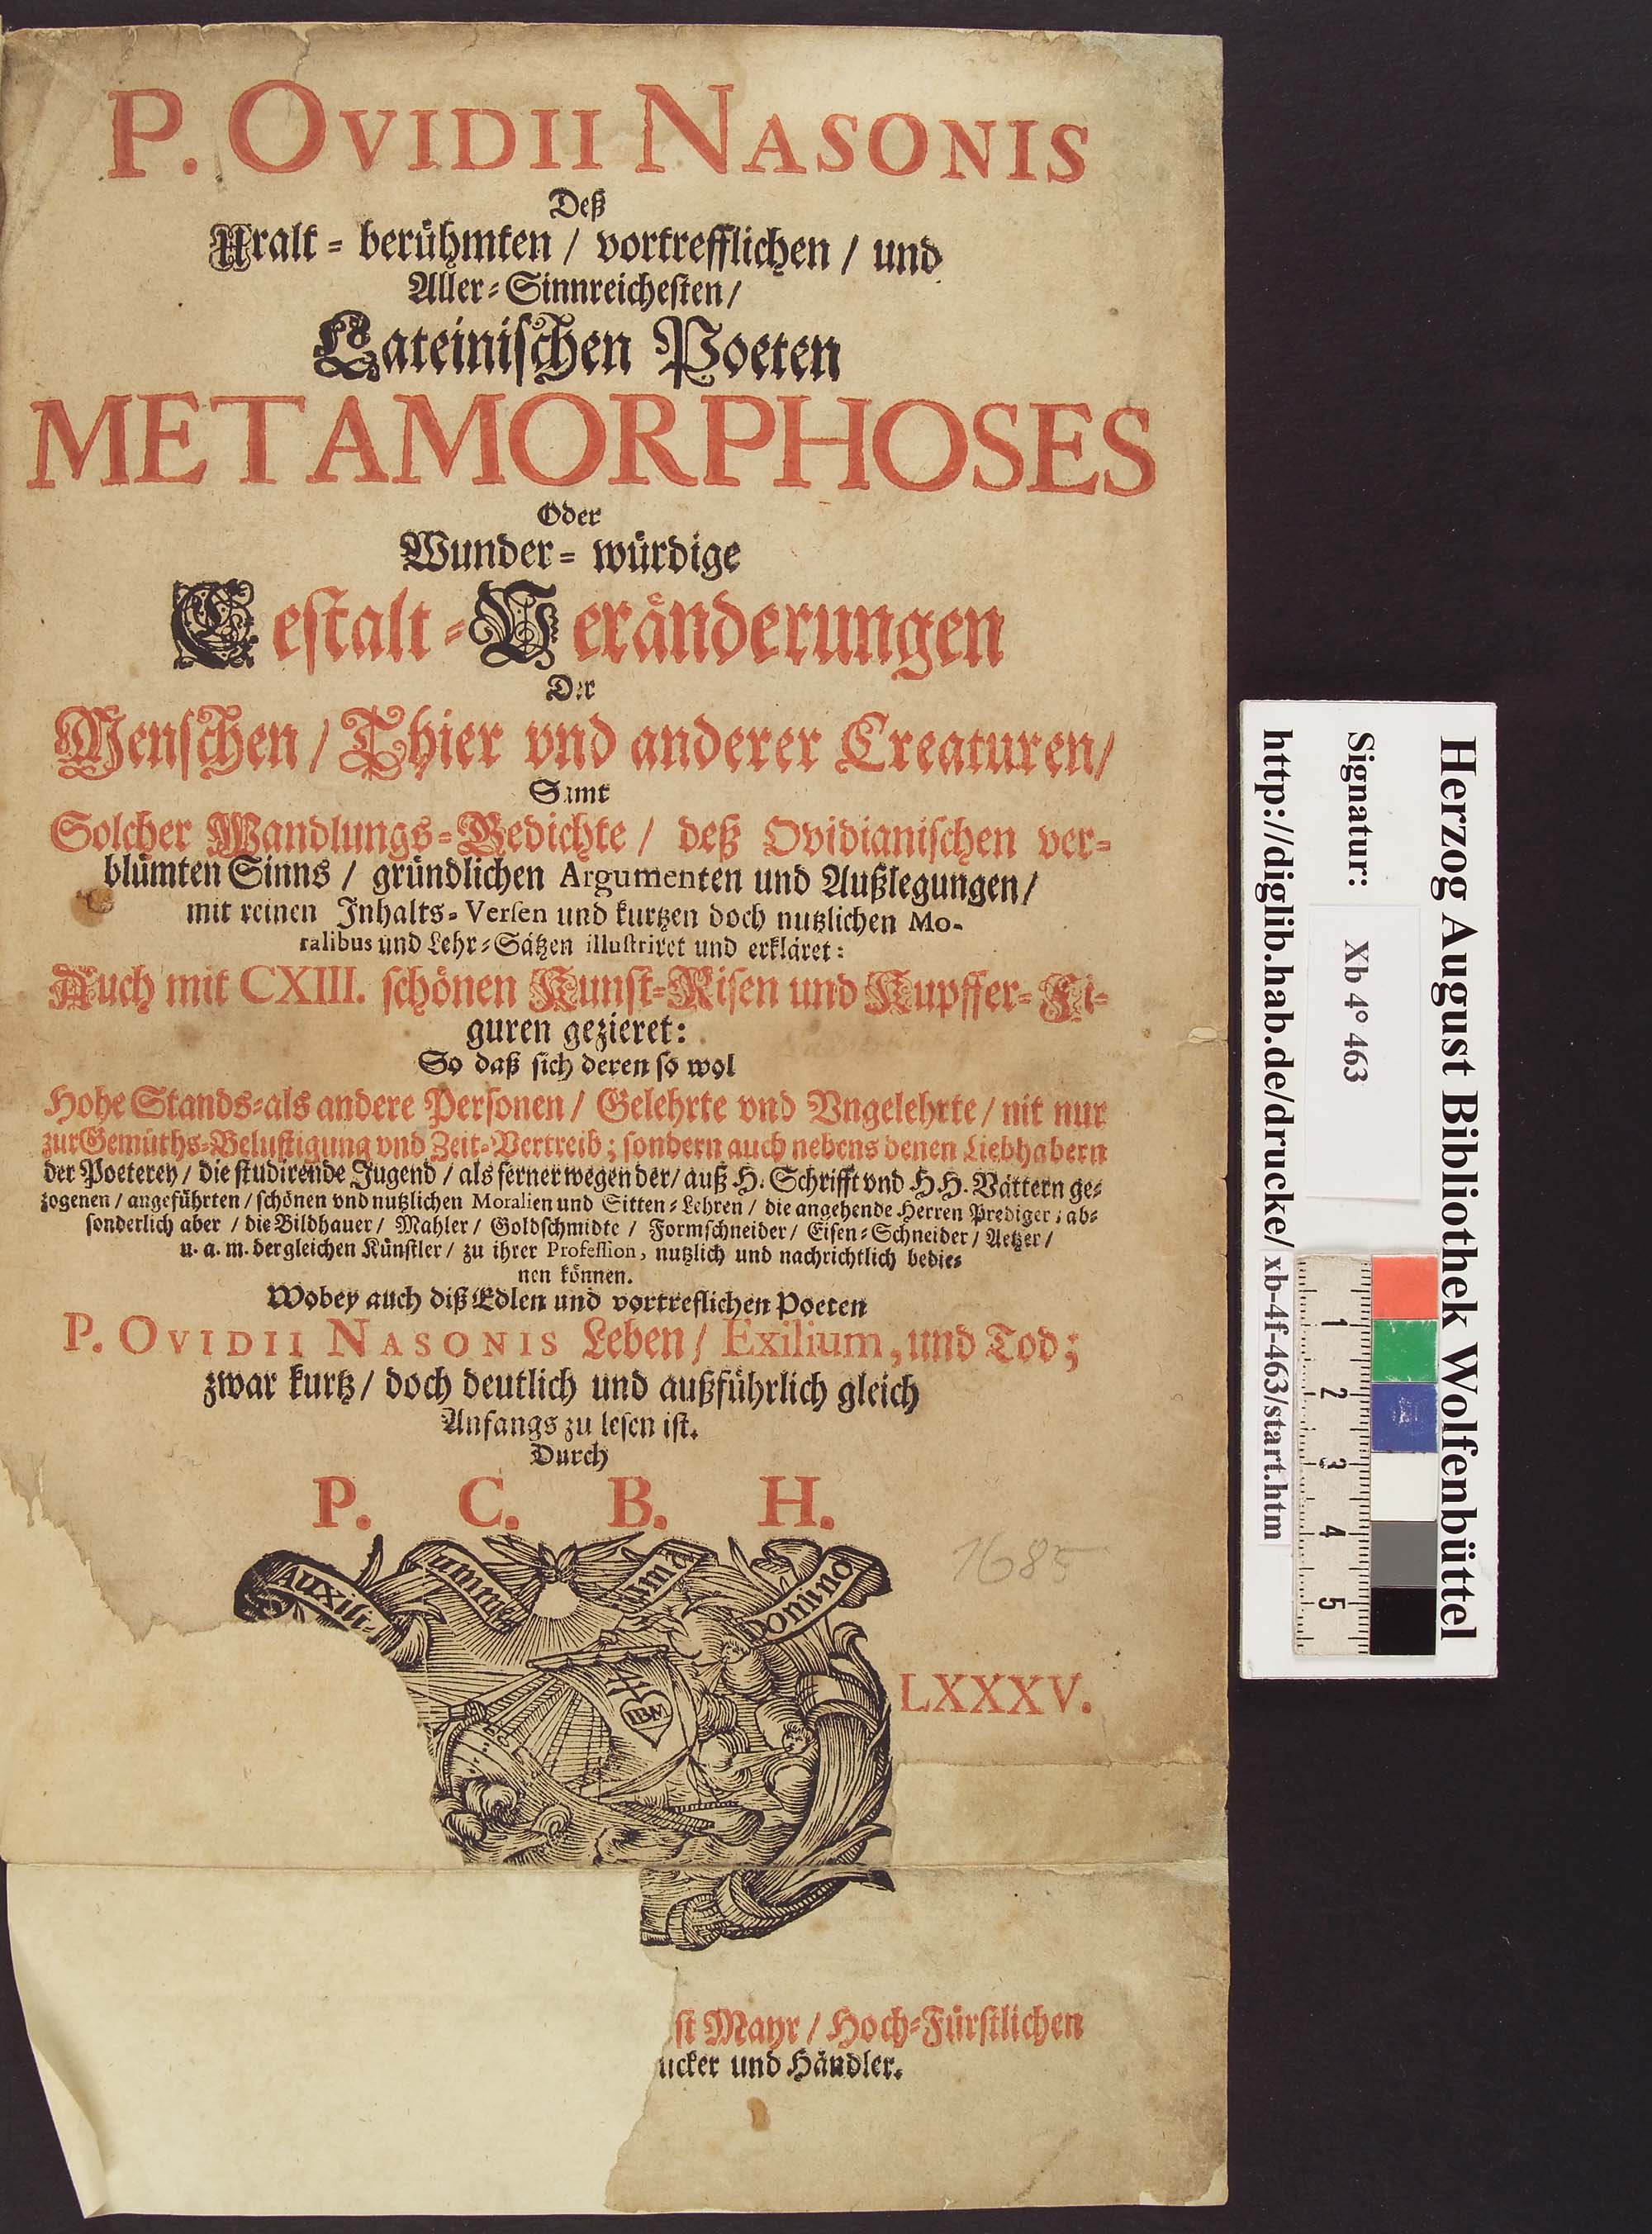 P. OVIDII NASONIS
Deß
Uralt-berühmten / vortrefflichen / und
Aller-Sinnreichesten /
Lateinischen Poeten
METAMORPHOSES
Oder
Wunder-würdige
Gestalt-Veränderungen
Der
Menschen / Thier vnd anderer Creaturen /
Samt
Solcher Wandlungs-Gedichte / deß Ovidianischen ver-
blümten Sinns / gründlichen Argumenten und Außlegungen /
mit reinen Inhalts-Versen und kurtzen doch nutzlichen Mo-
ralibus und Lehr-Sätzen illustriret und erkläret:
Auch mit CXIII. schönen Kunst-Risen und Kupffer-Fi-
guren gezieret:
So daß sich deren so wol
Hohe Stands-als andere Personen / Gelehrte vnd Vngelehrte / nit nur
zur Gemüths-Belustigung vnd Zeit-Vertreib; sondern auch nebens denen Liebhabern
der Poeterey / die studirende Jugend / als ferner wegen der / auß H. Schrifft vnd H.H. Vättern ge-
zogenen / angeführten / schönen vnd nutzlichen Moralien und Sitten-Lehren / die angehende Herren Prediger; ab-
sonderlich aber / die Bildhauer / Mahler / Goldschmidte / Formschneider / Eisen-Schneider / Aetzer /
u. a. m. dergleichen Künstler / zu ihrer Profession, nutzlich und nachrichtlich bedie-
nen können.
Wobey auch diß Edlen und vortreflichen Poeten
P. OVIDII NASONIS Leben / Exilium, und Tod;
zwar kurtz / doch deutlich und außführlich gleich
Anfangs zu lesen ist.
Durch
P. C. B. H.
1685
Auxili-
umm
Domino
IBM
LXXXV.
st Mayr / Hoch-Fürstlichen
ucker und Händler.
Herzog August Bibliothek Wolfenbüttel
Signatur: Xb 4° 463
http://diglib.hab.de/drucke/ xb-4f-463/start.htm
1 2 3 4 5